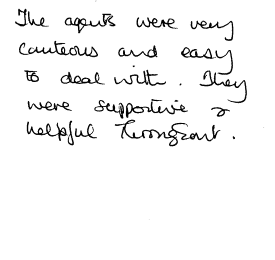 The agents were very
courteous and easy
to deal with. They
were supportive &
helpful throughout.